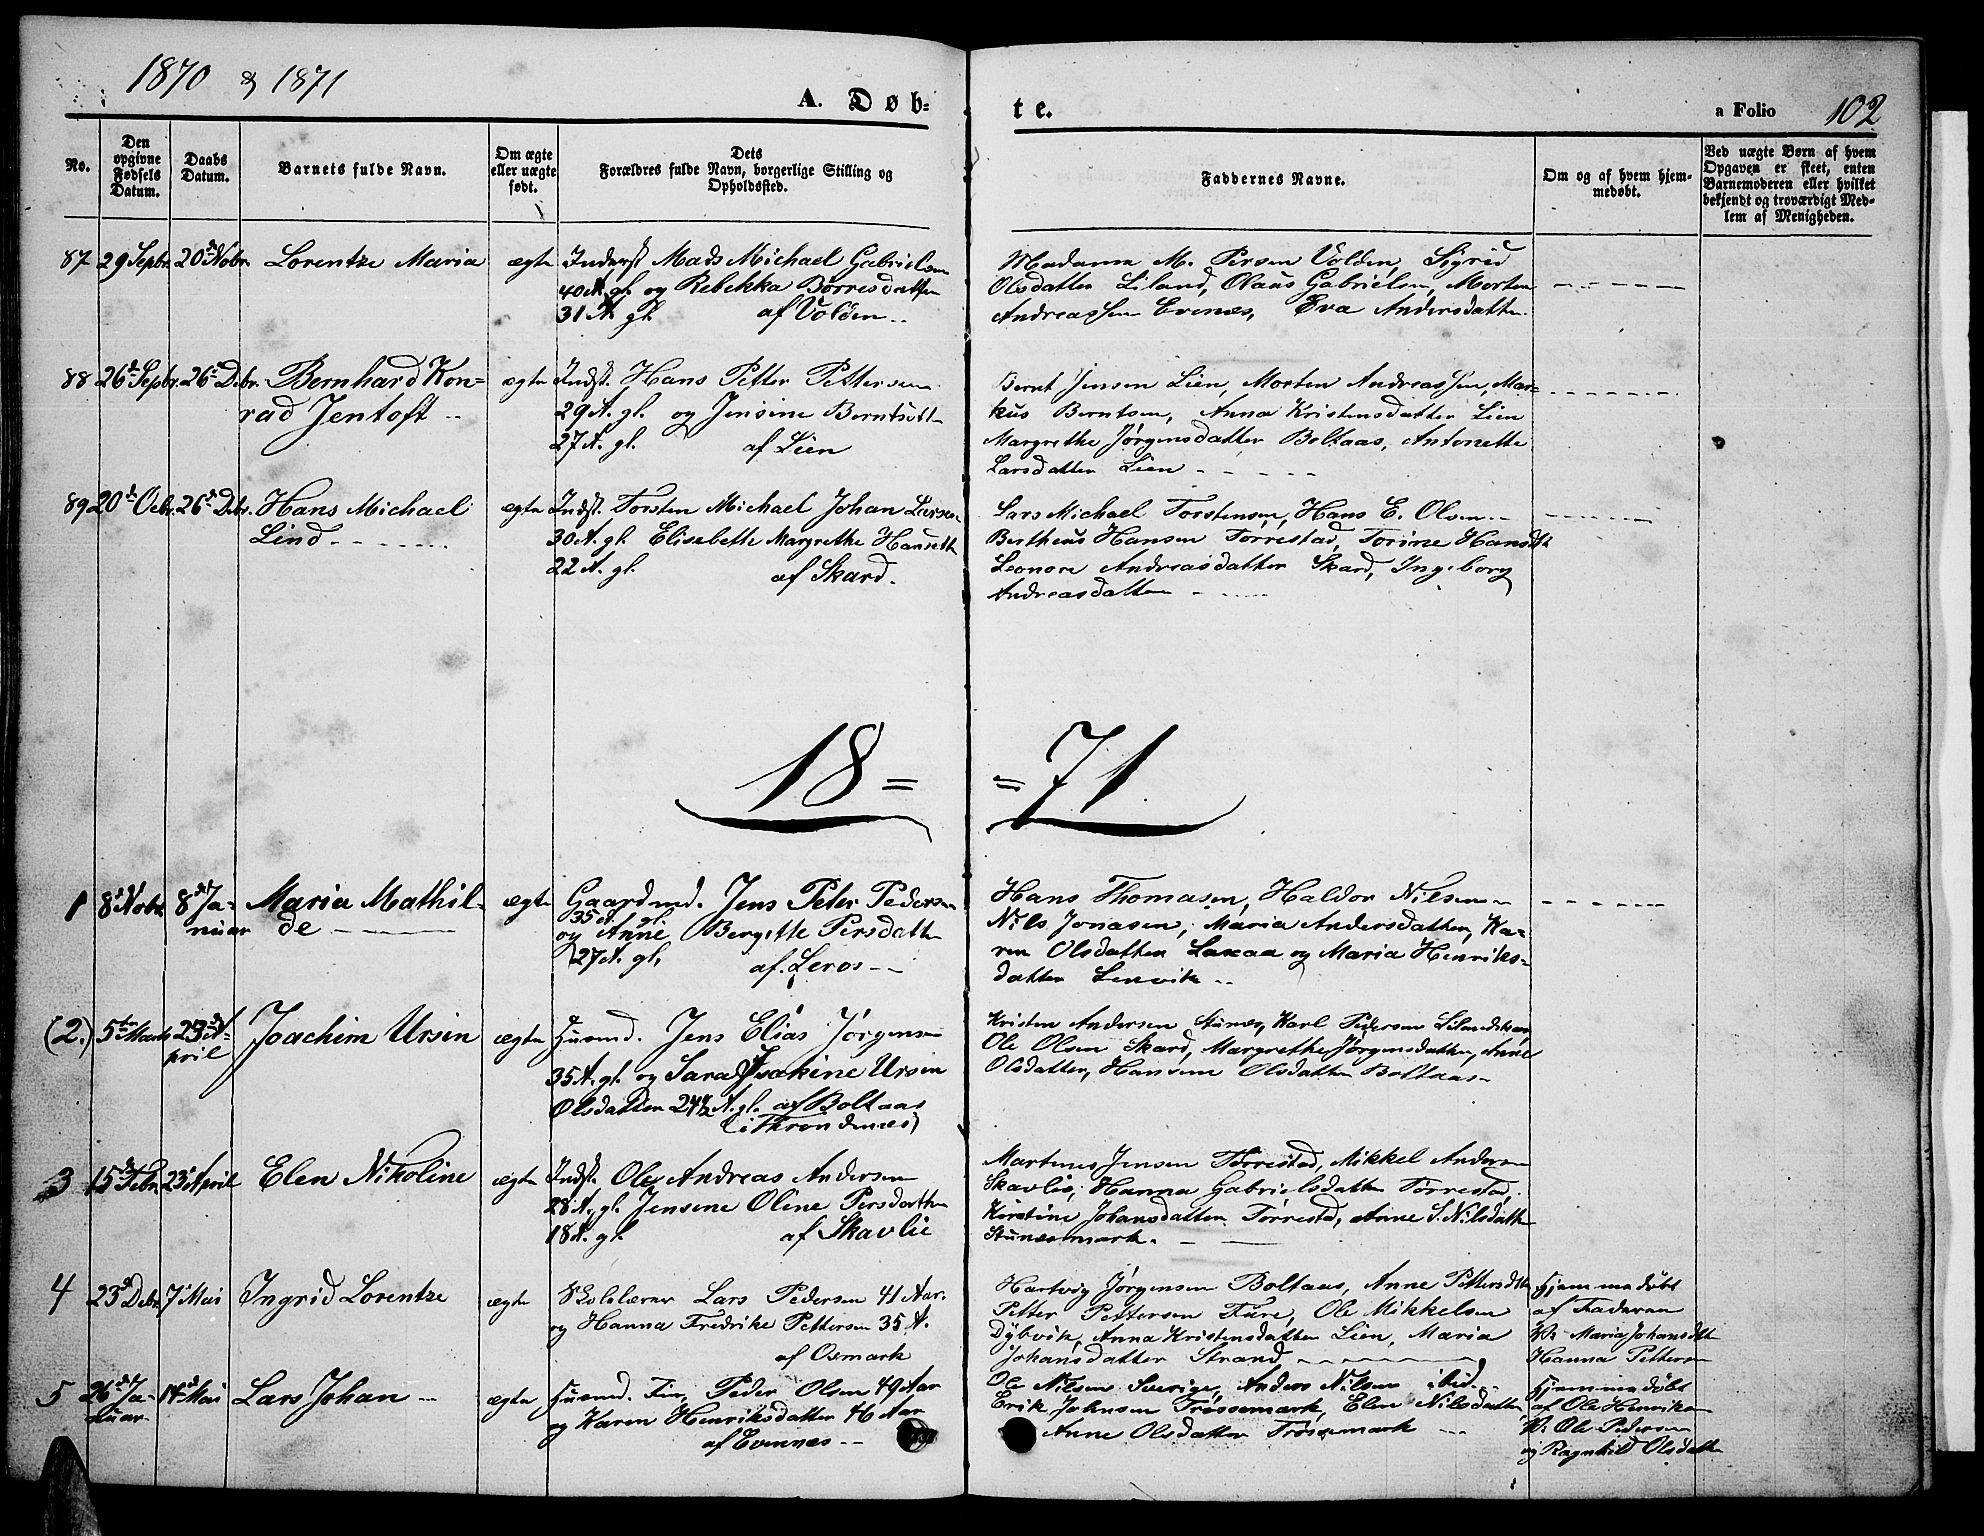 1870 & 1871
A. Døb-
te.
a Folio 102
No.
Den opgivne Fødsels Datum.
Daabs Datum.
Barnets fulde Navn.
Om ægte eller uægte født.
Dets Forældres fulde Navn, borgerlige Stilling og Opholdssted.
Faddernes Navne.
Om og af hvem hjem-
medøbt.
Ved uægte Børn af hvem
Opgaven er skeet, enten
Barnemoderen eller hvilket
bekjendt og troværdigt Med-
lem af Menigheden.
87 29 Septbr. 20de Nobr. Lorentze Maria ægte Inderst Mads Michael Gabrielsen
40 A. gl. og Rebekka Børresdatter
31 A. gl. af Volden
Madama M. Persen Volden, Sigrid
Olsdatter Liland, Olaus Gabrielsen, Morten
Andreassen Evenæs, Eva Andersdatter
88 26de Septbr. 26de Debr. Bernhard Kon-
rad Jentoft
ægte Indst. Hans Petter Pettersen
29 A. gl. og Jensine Berntsdtt
27 A. gl. af Lien
Bernt Jensen Lien, Morten Andreassen, Mar-
kus Berntsen, Anna Kristensdatter Lien
Margrethe Jørgensdatter Boltaas, Antonette
Larsdatter Lien
89 20de Ocbr. 26de Debr. Hans Michael
Lind
ægte Indst. Torsten Michael Johan Larsen
30 A. gl. Elisabette Margrethe Hansdtt
22 A. gl. af Skard.
Lars Michael Torstensen, Hans E. Olsen
Bertheus Hansen Tørrestad, Torine Hansdt
Leonore Andreasdatter Skard, Ingeborg
Andreasdatter
18= =71
1 8de Nobr. 8de Ja-
nuar
Maria Mathil-
de
ægte Gaardmd. Jens Peter Pedersen
35 A. gl.
og Anne Bergitte Persdatter
27 A. gl. af Leros
Hans Thomasen, Haldor Nilsen
Nils Jonasen, Maria Andersdatter, Ka-
ren Olsdatter Laxaa og Maria Henriks-
datter Lenvik
(2.) 5te Marts 23de A-
pril
Joachim Ursin ægte Husmd. Jens Elias Jørgensen
35 A. gl. og Sara Isakine Ursin
Olsdatter 24½ A. gl. af Boltaas
(i Throndenæs)
Kristen Andersen Stunes, Karl Pedersen
Ole Olsen Skard, Margrethe Jørgensdatter, Anne
Olsdatter, Hansine Olsdatter Boltaas
3 15de Febr. 23de April Elen Nikoline ægte Indst. Ole Andreas Andersen
28 A. gl. Jensine Oline Persdatter
18 A. gl. af Skavlie
Martinus Jensen Tørrestad, Mikkel Andersen
Skavlie, Hanna Gabrielsdatter Tørrestad,
Kirstine Johansdatter Tørrestad, Anne S. Nilsdatter
Stunesmark.
4 23de Debr. 7de Mai Ingrid Lorentze ægte Skolelærer Lars Pedersen 41 Aar.
og Hanna Fredrike Pettersen 35 A.
af Osmark
Hartvig Jørgensen Boltaas, Anne Pettersdtt
Petter Pettersen Fure, Ole Mikkelsen
Dybvik, Anna Kristensdatter Lien, Maria
Johansdatter Strand
Hjemmedøbt
af Faderen
V. Maria Johansdtt
Hanna Pettersen
5 26de Ja-
nuar
14de Mai Lars Johan ægte Husmd. Fin, Peder Olsen 49 Aar
og Karen Henriksdatter 46 Aar
af Evennæs
Ole Nilsen Sverige, Anders Nilsen ibid.
Erik Johnsen Trøssemark, Elen Nilsdatter
Anne Olsdatter Trøssemark
Hjemmedøbt
af Ole Henriksen
V. Ole Pedersen
og Ragnhild Olsdatter